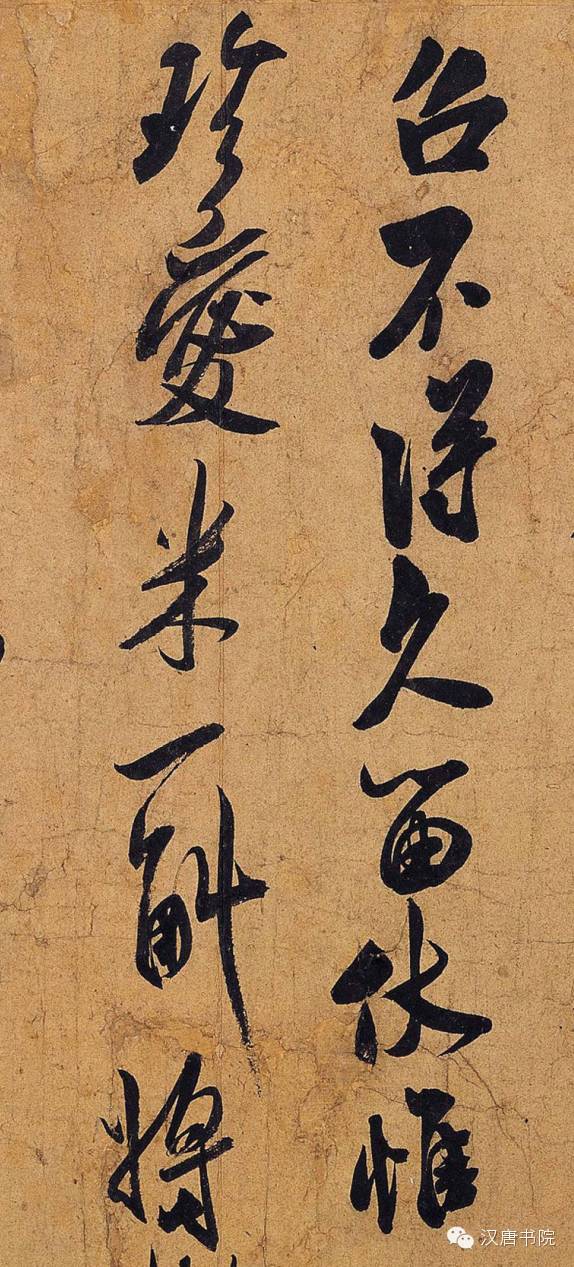 召不得久留伏惟
珍愛米一斛將
汉唐书院